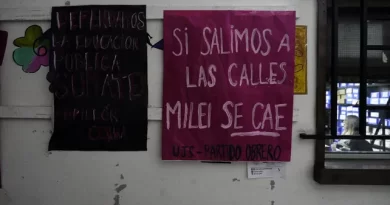 DEFENDAMOS
LA EDUCACIÓN
PÚBLICA
SUTE
TAMBIÉN
SI SALIMOS A
LAS CALLES
MILEI SE CAE
UJS - PARTIDO OBRERO